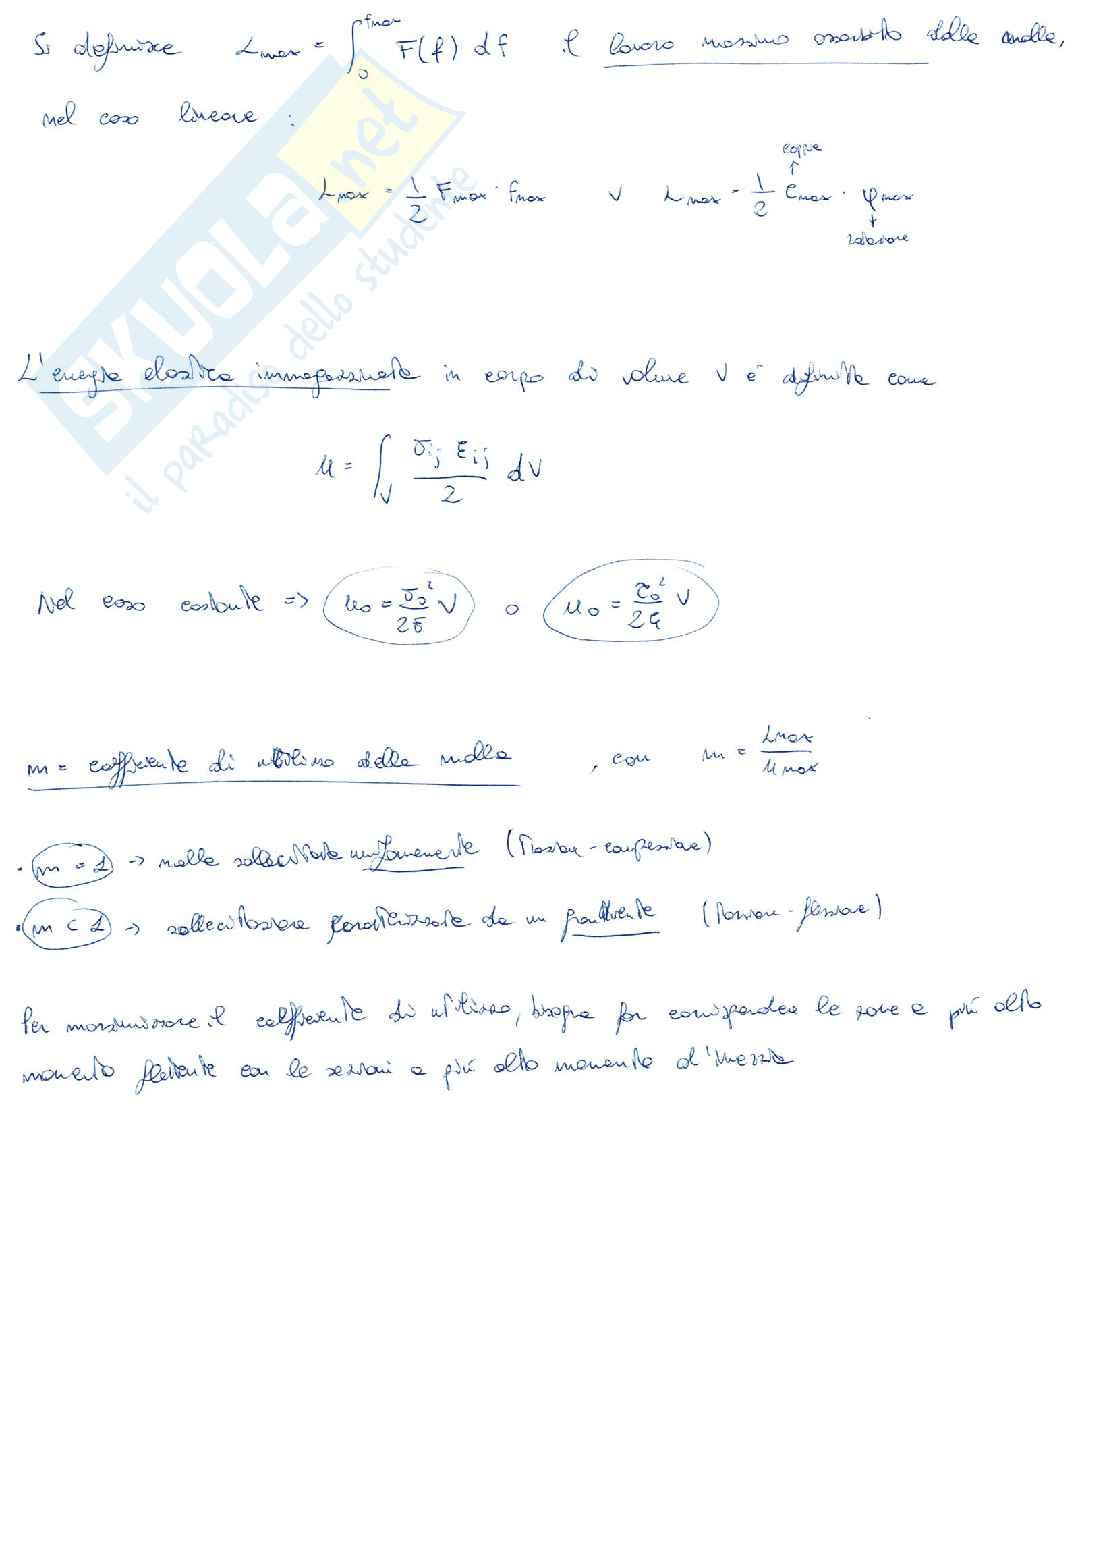 Si definisce Lmax = ∫₀^fmax F(f) df il lavoro massimo assorbito dalla molla,
nel caso lineare :
coppia
Lmax = 1/2 Fmax · fmax v Lmax = 1/2 Cmax · φmax
rotazione
L'energia elastica immagazzinata in corpo di volume V è definita come
u = ∫_V σij εij / 2 dV
Nel caso costante => u₀ = σ₀²/2E V o u₀ = τ₀²/2G V
m = coefficiente di utilizzo della molla , con m = Lmax/umax
· m = 1 -> molla sollecitata uniformemente (Trazione - compressione)
· m < 1 -> sollecitazione caratterizzata da un gradiente (Torsione - flessione)
Per massimizzare il coefficiente di utilizzo, bisogna far corrispondere le zone a più alto
momento flettente con le sezioni a più alto momento d'inerzia
SKUOLA.net
il paradiso dello studente